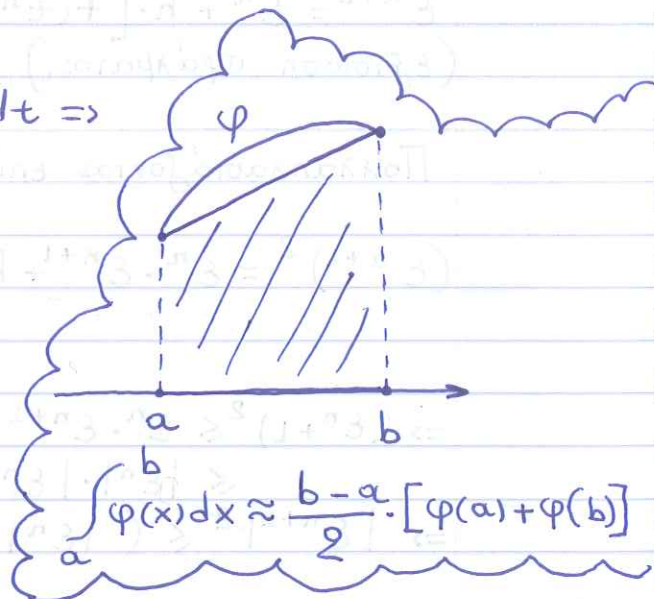 dt =>
φ
a
b
∫_a^b φ(x)dx ≈ (b-a)/2 · [φ(a)+φ(b)]